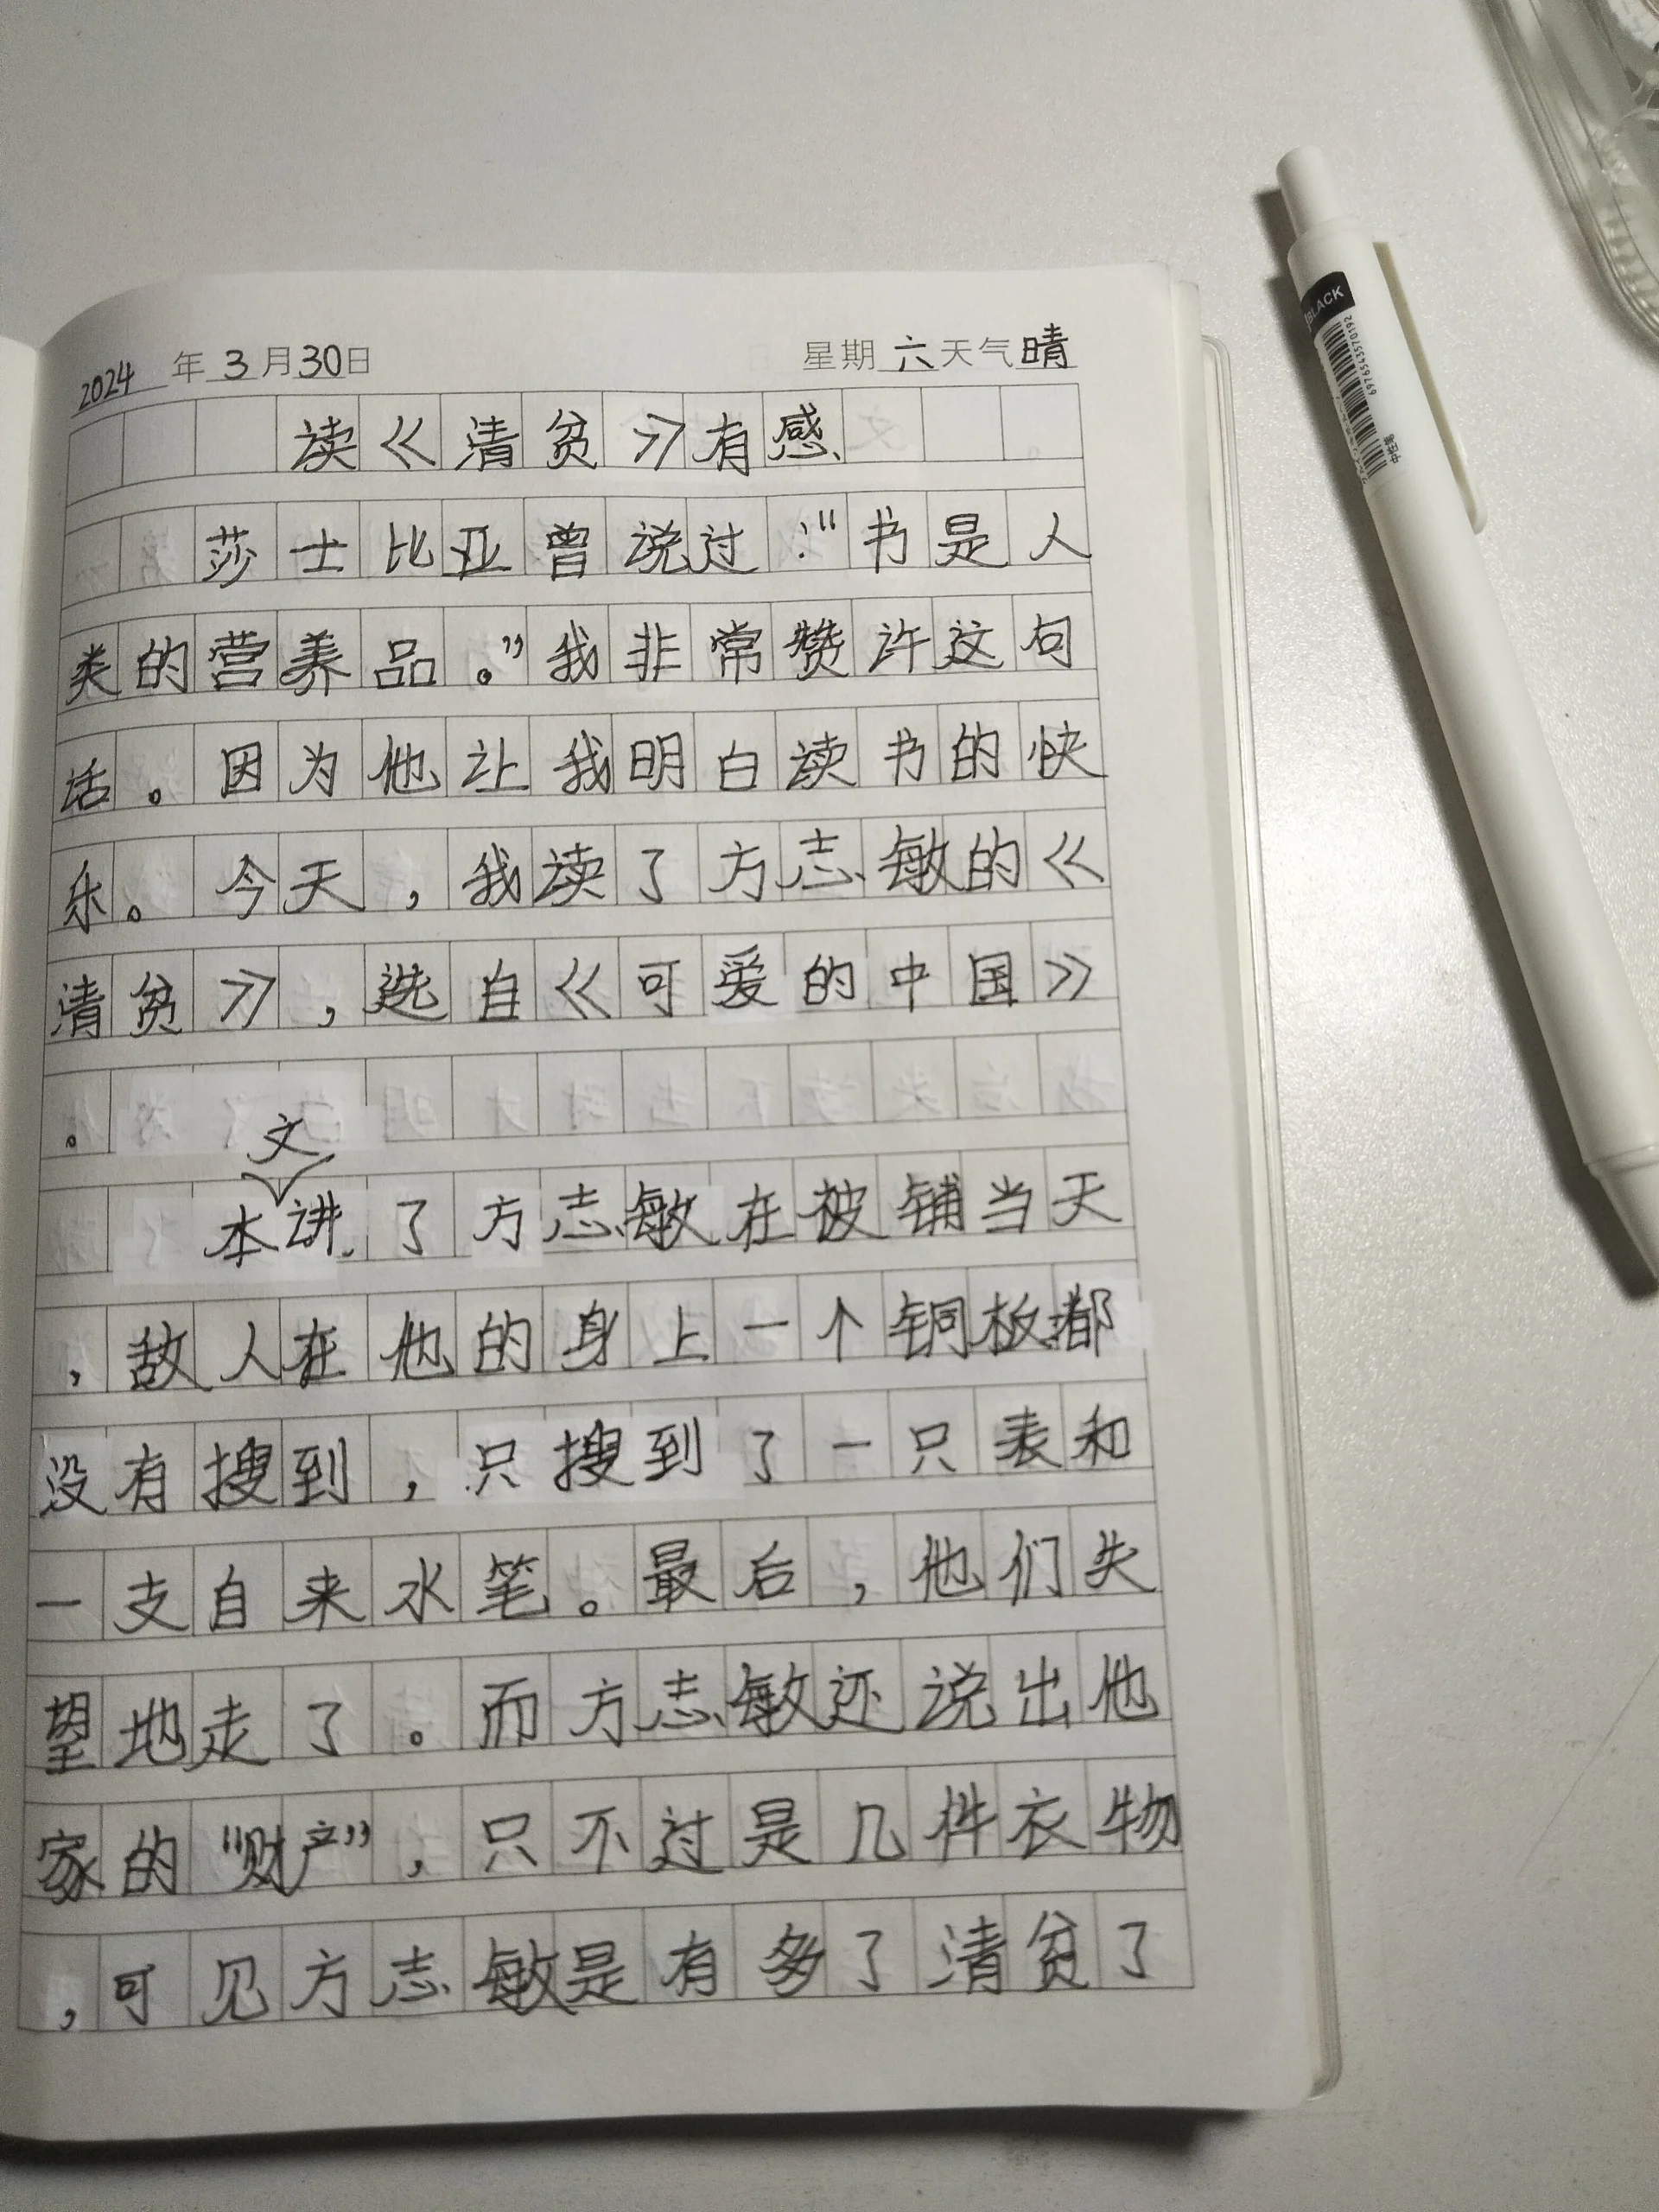 2024年3月30日 星期六天气晴
读《清贫》有感
莎士比亚曾说过:"书是人
类的营养品。"我非常赞许这句
话。因为他让我明白读书的快
乐。今天,我读了方志敏的《
清贫》,选自《可爱的中国》
。
文
本讲了方志敏在被铺当天
,敌人在他的身上一个铜板都
没有搜到,只搜到了一只表和
一支自来水笔。最后,他们失
望地走了。而方志敏还说出他
家的"财产",只不过是几件衣物
,可见方志敏是有多了清贫了
BLACK
6976543570192
中性笔